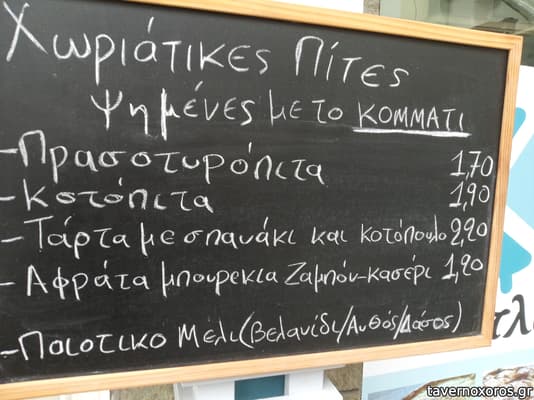 Χωριάτικες Πίτες
Ψημένες με το ΚΟΜΜΑΤΙ
-Πρασοτυρόπιτα 1,70
-Κοτόπιτα 1,90
-Τάρτα με σπανάκι και κοτόπουλο 2,20
-Αφράτα μπουρεκια Ζαμπόν-κασέρι 1,90
-Ποιοτικο Μέλι (Βελανίδι/Ανθός/Δάσος)
tavernoxoros.gr